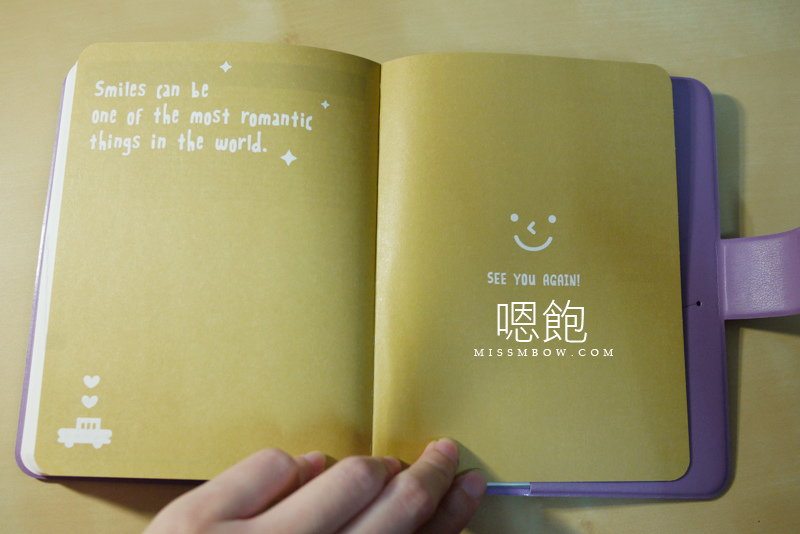 Smiles can be
one of the most romantic
things in the world.
SEE YOU AGAIN!
嗯飽
MISSMBOW.COM